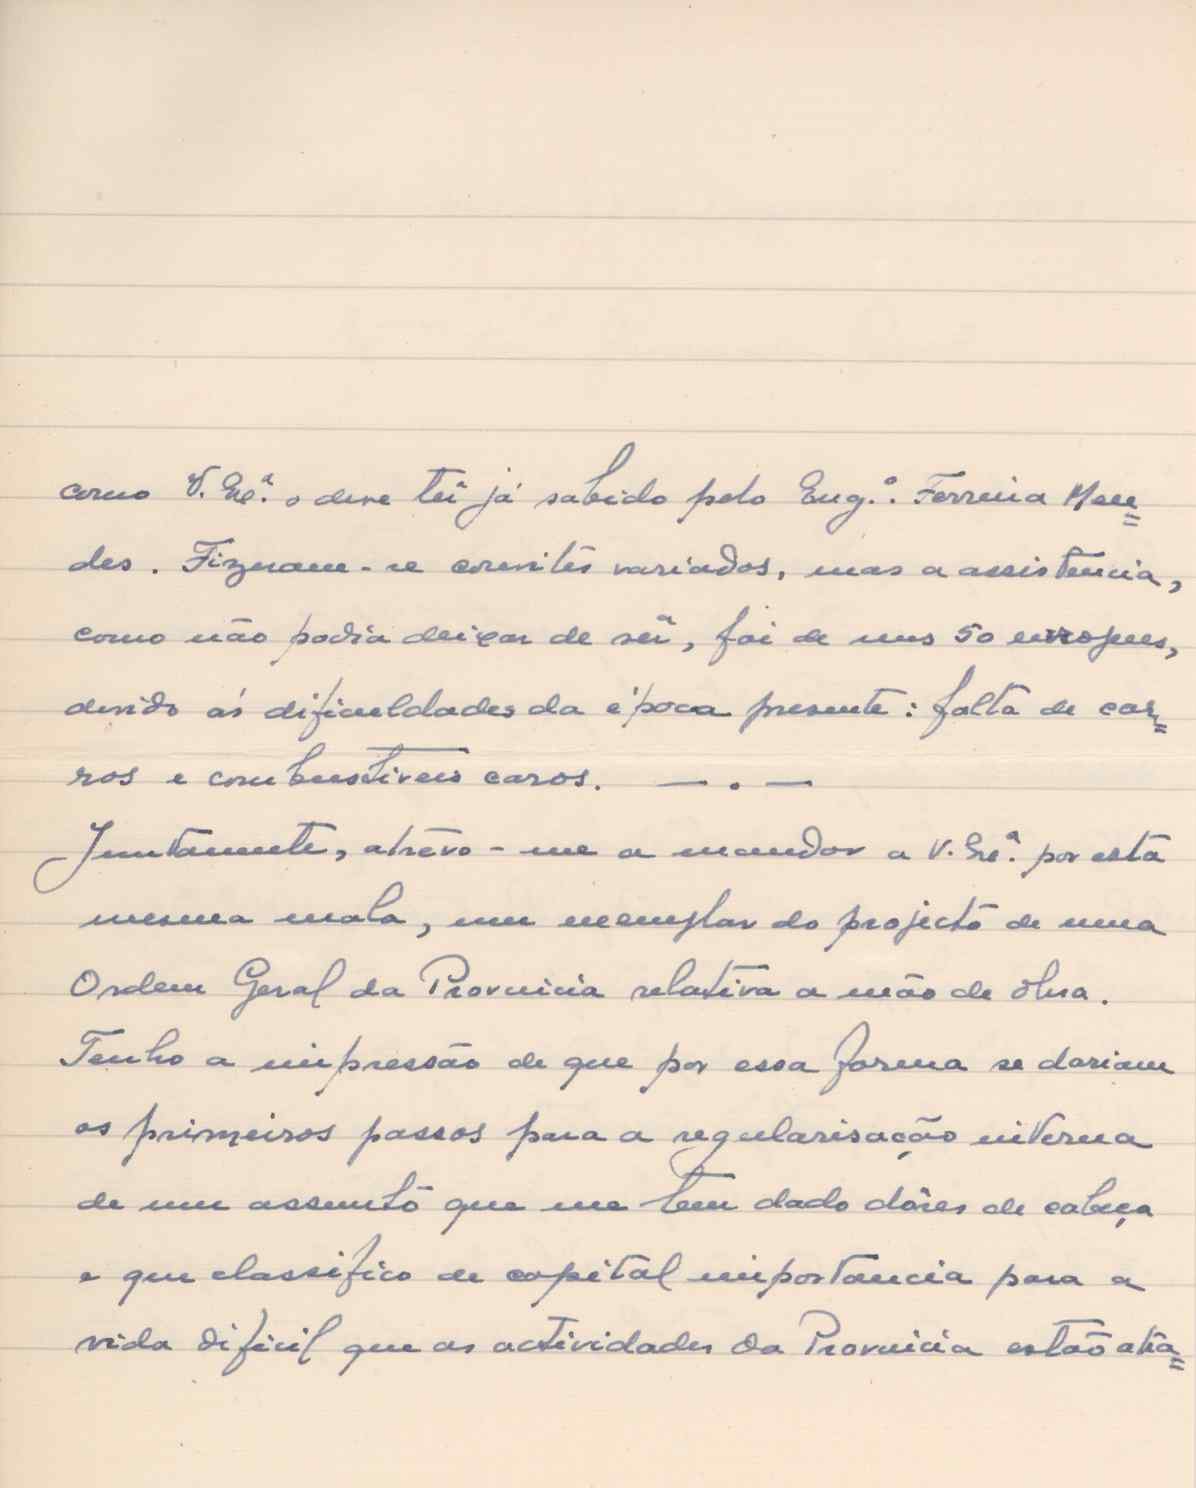 como V. Exª. o deve ter já sabido pelo Eng.º. Ferreira Men=
des. Fizeram-se convites variados, mas a assistencia,
como não podia deixar de ser, foi de uns 50 europeus,
devido ás dificuldades da época presente: falta de car=
ros e combustiveis caros. — . —
Juntamente, atrevo-me a mandar a V. Exª. por esta
mesma mala, um exemplar do projecto de uma
Ordem Geral da Provincia relativa a mão de obra.
Tenho a impressão de que por essa forma se dariam
os primeiros passos para a regularisação interna
de um assunto que me tem dado dôres de cabeça
e que classifico de capital importancia para a
vida dificil que as actividades da Provincia estão atra=